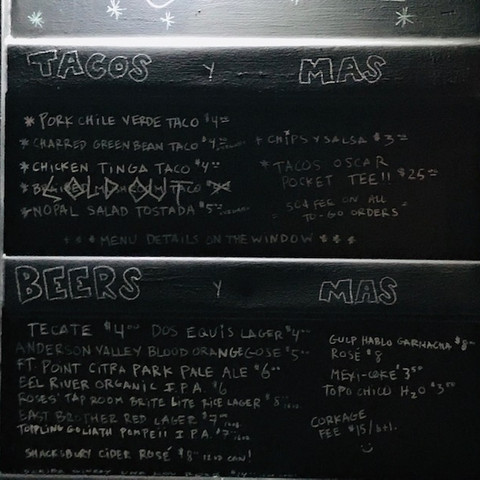 TACOS Y MAS
* PORK CHILE VERDE TACO $4
* CHARRED GREEN BEAN TACO $4
* CHICKEN TINGA TACO $4
* BRAISED MUSHROOM TACO
SOLD OUT
* NOPAL SALAD TOSTADA $5
+ CHIPS Y SALSA $3
* TACOS OSCAR
POCKET TEE!! $25
50¢ FEE ON ALL
TO-GO ORDERS
* * * MENU DETAILS ON THE WINDOW * * *
BEERS Y MAS
TECATE $4 DOS EQUIS LAGER $4
ANDERSON VALLEY BLOOD ORANGE GOSE $5
FT. POINT CITRA PARK PALE ALE $6
EEL RIVER ORGANIC I.P.A. $6
ROSES' TAPROOM BRITE LITE RICE LAGER $8
EAST BROTHER RED LAGER $7
TOPPLING GOLIATH POMPEII I.P.A. $7
SHACKSBURY CIDER ROSÉ $8 12OZ CAN!
GULP HABLO GARNACHA $8
ROSÉ $8
MEXI-COKE $3.50
TOPO CHICO H₂O $3
CORKAGE
FEE $15/btl.